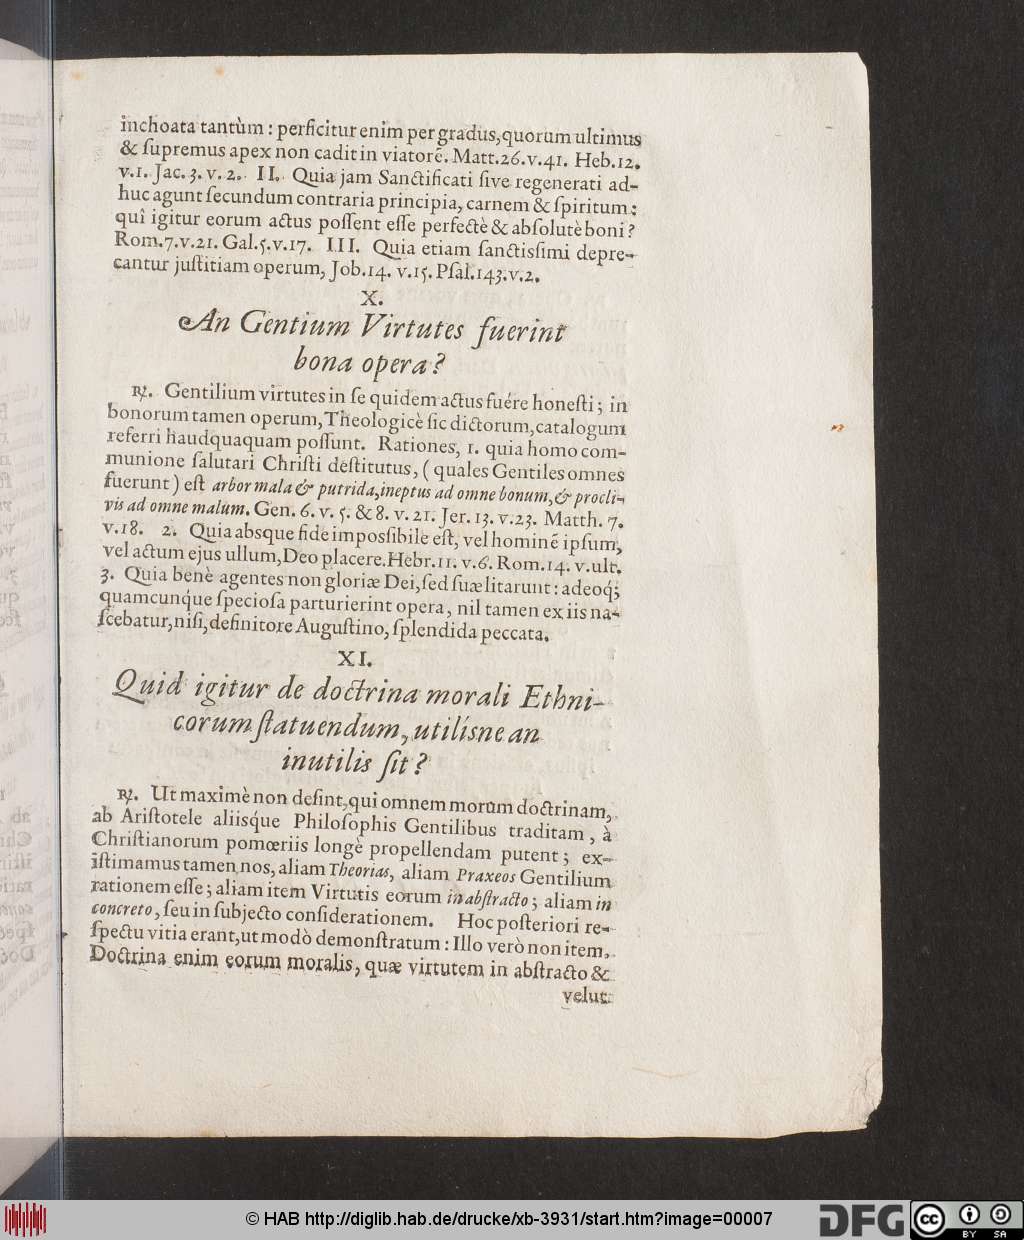 inchoata tantùm : perficitur enim per gradus, quorum ultimus
& ſupremus apex non cadit in viatorẽ. Matt. 26. v. 41. Heb. 12.
v. 1. Jac. 3. v. 2. II. Quia jam Sanctificati ſive regenerati ad-
huc agunt ſecundum contraria principia, carnem & ſpiritum:
quî igitur eorum actus poſſent eſſe perfectè & abſolutè boni?
Rom. 7. v. 21. Gal. 5. v. 17. III. Quia etiam ſanctisſimi depre-
cantur juſtitiam operum, Job. 14. v. 15. Pſal. 143. v. 2.
X.
An Gentium Virtutes fuerint
bona opera?
℞. Gentilium virtutes in ſe quidem actus fuére honeſti; in
bonorum tamen operum, Theologicè ſic dictorum, catalogum
referri haudquaquam poſſunt. Rationes, 1. quia homo com-
munione ſalutari Chriſti deſtitutus, ( quales Gentiles omnes
fuerunt ) eſt arbor mala & putrida, ineptus ad omne bonum, & procli-
vis ad omne malum. Gen. 6. v. 5. & 8. v. 21. Jer. 13. v. 23. Matth. 7.
v. 18. 2. Quia absque fide imposſibile eſt, vel hominẽ ipſum,
vel actum ejus ullum, Deo placere. Hebr. 11. v. 6. Rom. 14. v. ult.
3. Quia benè agentes non gloriæ Dei, ſed ſuæ litarunt: adeoq́;
quamcunq́ue ſpecioſa parturierint opera, nil tamen ex iis na-
ſcebatur, niſi, definitore Auguſtino, ſplendida peccata.
XI.
Quid igitur de doctrina morali Ethni-
corum ſtatuendum, utilísne an
inutilis ſit?
℞. Ut maximè non deſint, qui omnem morum doctrinam,
ab Ariſtotele aliisq́ue Philoſophis Gentilibus traditam, à
Chriſtianorum pomœriis longè propellendam putent; ex-
iſtimamus tamen nos, aliam Theorias, aliam Praxeos Gentilium
rationem eſſe; aliam item Virtutis eorum in abſtracto; aliam in
concreto, ſeu in ſubjecto conſiderationem. Hoc poſteriori re-
ſpectu vitia erant, ut modò demonſtratum: Illo verò non item.
Doctrina enim eorum moralis, quæ virtutem in abſtracto &
velut
© HAB http://diglib.hab.de/drucke/xb-3931/start.htm?image=00007
DFG
cc
BY SA